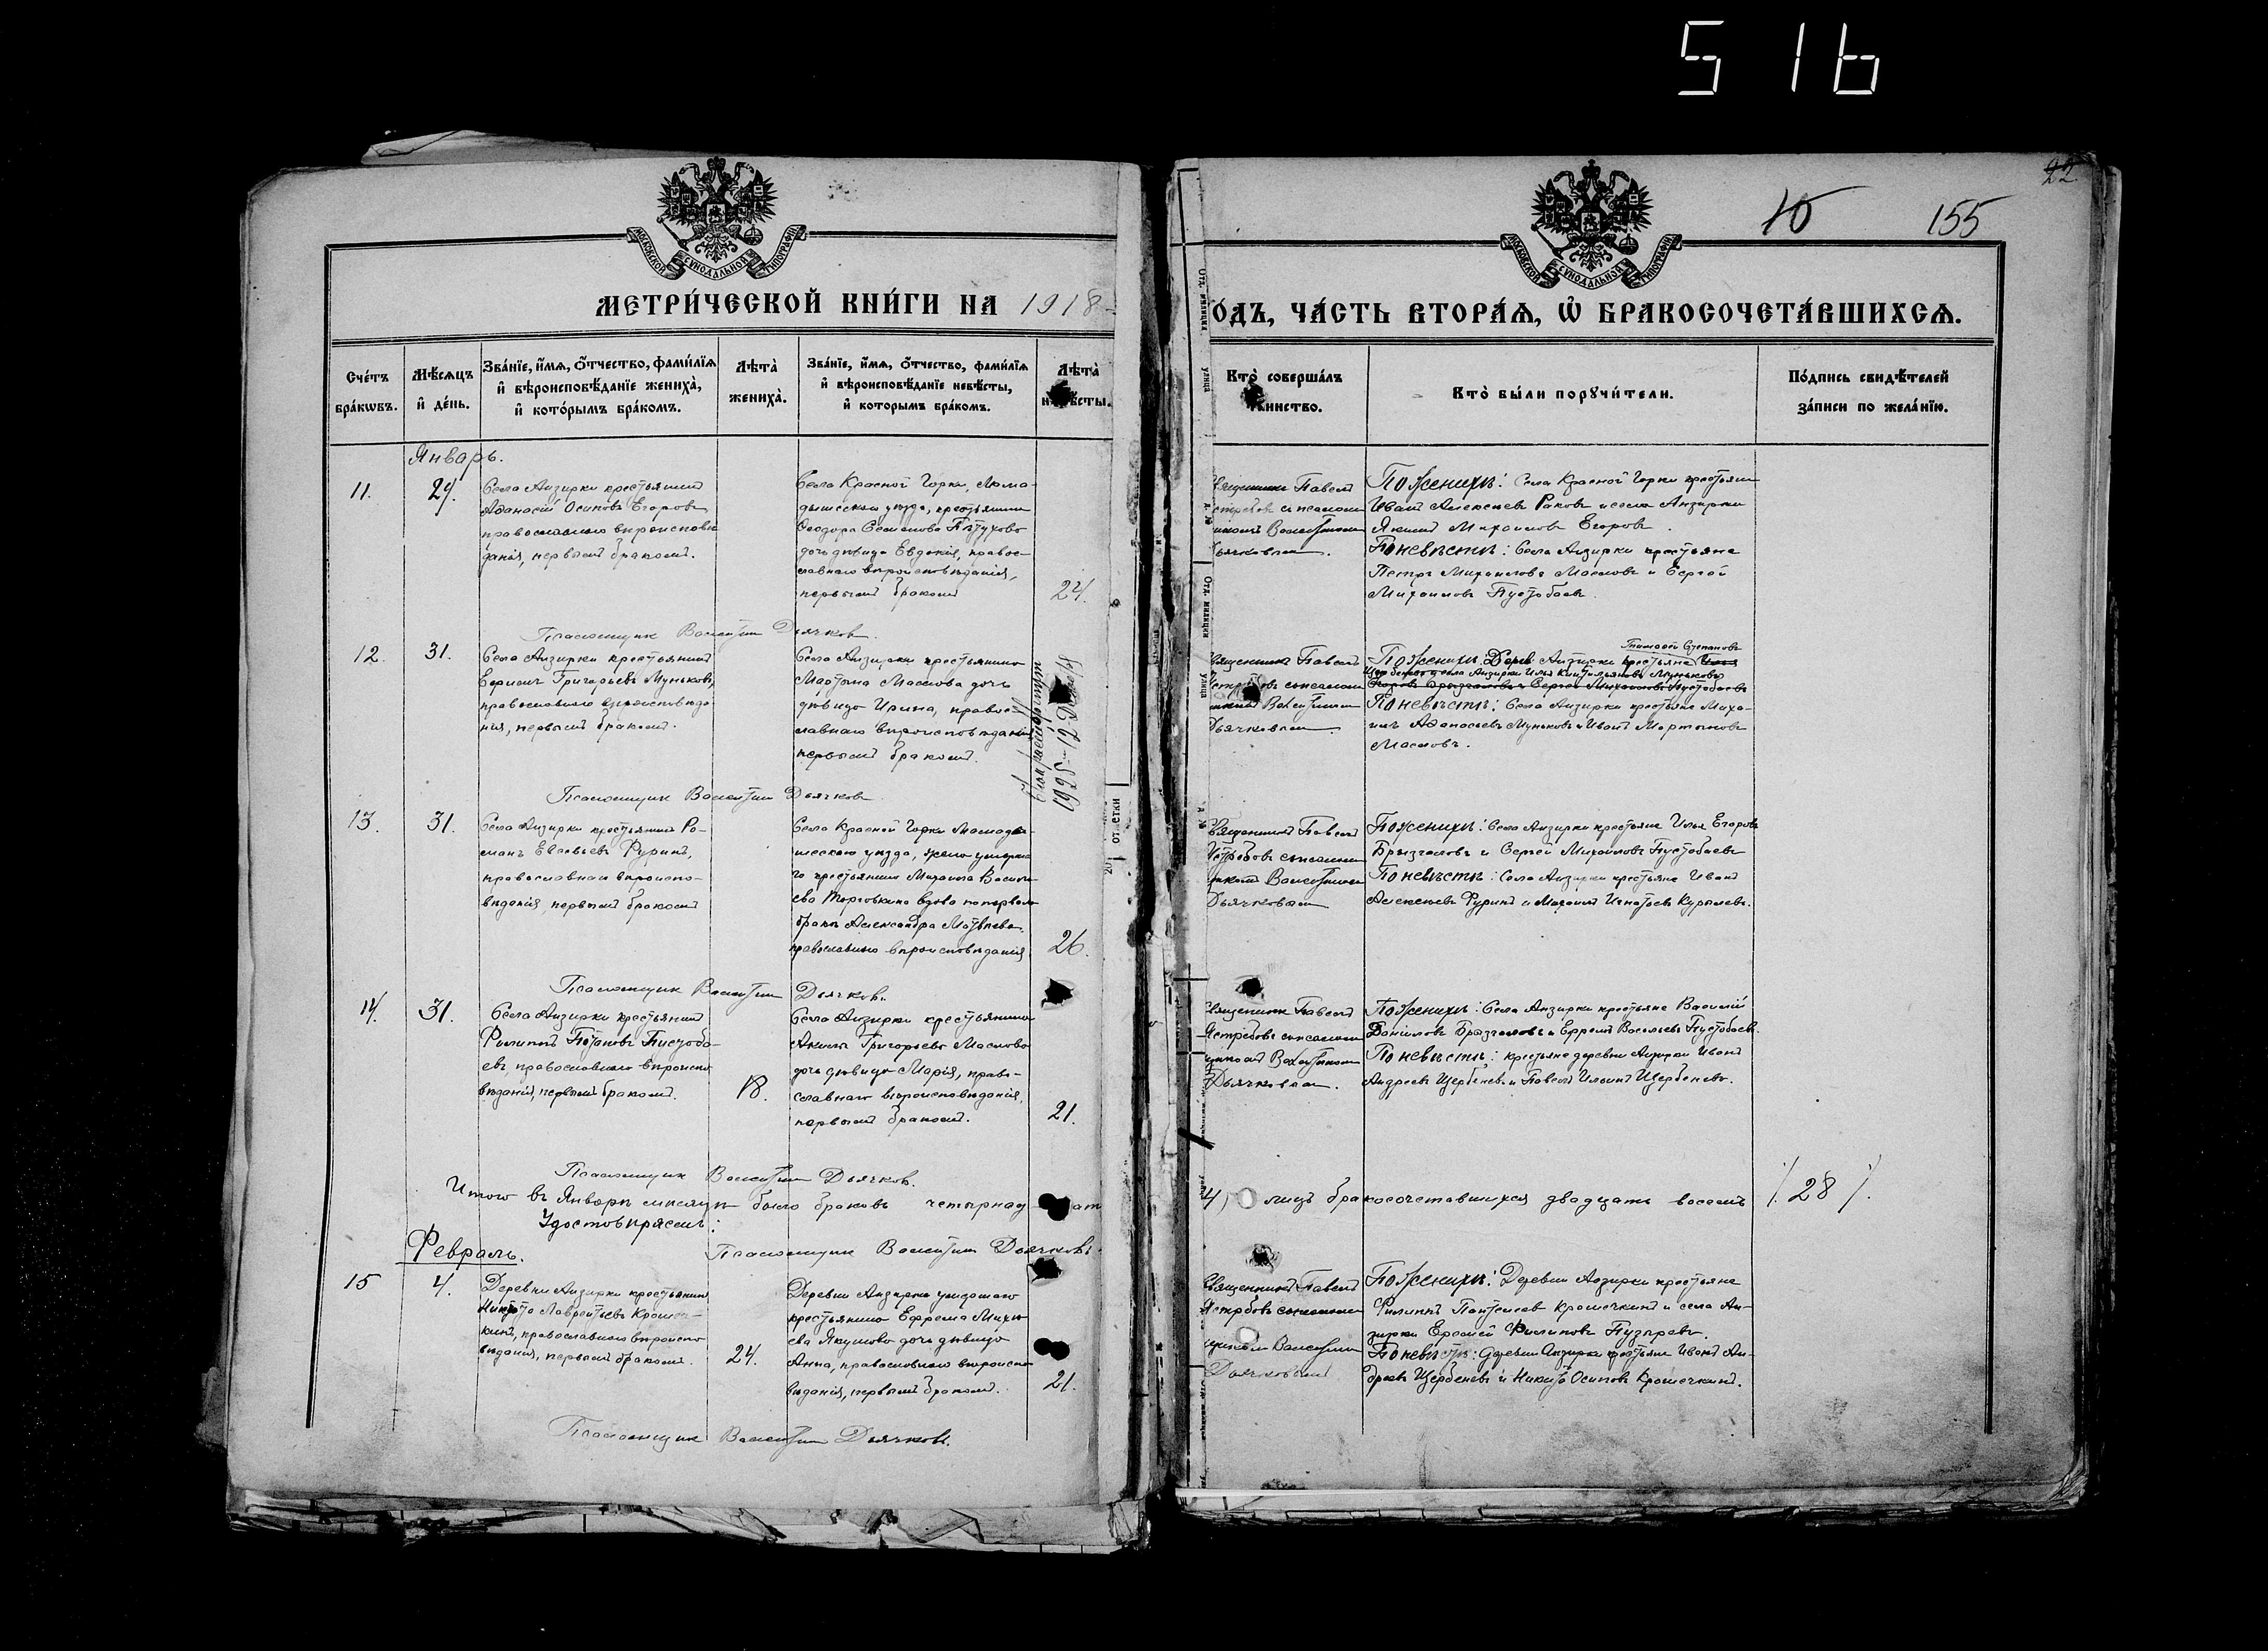 516
22
10
155
МОСКОВСКОЙ СѴНОДАЛЬНОЙ ТИПОГРАФІИ
МОСКОВСКОЙ СѴНОДАЛЬНОЙ ТИПОГРАФІИ
МЕТРИ́ЧЕСКОЙ КНИ́ГИ НА 1918
О́ДЪ, ЧА́СТЬ ВТОРА́Ѧ, Ѽ БРАКОСОЧЕТА́ВШИХСѦ.
Сче́тъ бра́кѡвъ.
Мѣ́сѧцъ и҆ де́нь.
Зва́нїе, и҆́мѧ, ѻ҆́тчество, фами́лїѧ
и҆ вѣроисповѣ́данїе жениха̀,
и҆ кото́рымъ бра́комъ.
Лѣта̀ жениха̀.
Зва́нїе, и҆́мѧ, ѻ҆́тчество, фами́лїѧ
и҆ вѣроисповѣ́данїе невѣ́сты,
и҆ которымъ бра́комъ.
Лѣта̀
Кто̀ соверша́лъ
таинство.
Кто̀ бы́ли порꙋчи́тели.
По́дпись свидѣ́телей
за́писи по жела́нїю.
Январь.
11.
29.
Села Анзирки крестьянинъ
Аѳанасій Осиповъ Егоровъ
православнаго вѣроисповѣ
данія, первымъ бракомъ.
Села Красной Горки, Мама-
дышскаго уѣзда, крестьянина
Ѳеодора Семенова Патухова
дочь дѣвица Евдокія, право-
славнаго вѣроисповѣданія,
первымъ бракомъ
24.
Священникъ Павелъ
Ястребовъ съ псалом
щикомъ Валентиномъ
Дьячковымъ.
По женихѣ: Села Красной Горки крестьяне
Иванъ Алексѣевъ Раковъ и села Анзирки
Якимъ Михаиловъ Егоровъ.
По невѣстѣ: Села Анзирки крестьяне
Петръ Михаиловъ Масловъ и Сергѣй
Михаиловъ Пустобаевъ.
Псаломщик Валентин Дьячков.
12.
31.
Села Анзирки крестьянинъ
Григорьевъ Муньковъ,
православнаго вѣроисповѣда-
нія, первымъ бракомъ.
Села Анзирки крестьянина
Мартына Маслова дочь
дѣвица Ирина, право-
славнаго вѣроисповѣданія
первымъ бракомъ.
Священникъ Павелъ
Ястребовъ съ псалом
щикомъ Валентиномъ
Дьячковымъ.
Тимофей Степановъ
По женихѣ: Дерев. Анзирки крестьяне
Щербеневъ и села Анзирки Илья Муньковъ
Сергѣй Михаиловъ Пустобаевъ
По невѣстѣ: Села Анзирки крестьяне Миха-
илъ Аѳанасьевъ Муньковъ и Иванъ Мартыновъ
Масловъ.
Псаломщик Валентин Дьячков
13.
31.
Села Анзирки крестьянинъ Ро-
манъ Евсевьевъ Фуринъ,
православнаго вѣроиспо-
вѣданія, первымъ бракомъ
Села Красной Горки Мамады-
шскаго уѣзда, жена умерша
го крестьянина Михаила Василь
ева Торговкина вдова по первом
бракѣ Александра Матвѣева.
православнаго вѣроисповѣданія
26.
Священникъ Павелъ
Ястребовъ съ псалом
щикомъ Валентиномъ
Дьячковымъ
По женихѣ: Села Анзирки крестьяне Илья Егоровъ
Брызгаловъ и Сергѣй Михаиловъ Пустобаевъ
По невѣстѣ: Села Анзирки крестьяне Иванъ
Алексѣевъ Фуринъ и Михаилъ Игнатьевъ Курылевъ.
Псаломщик Валентин Дьячков.
14.
31.
Села Анзирки крестьянинъ
Филиппъ Потаповъ Пустоба-
евъ, православнаго вѣроиспо
вѣданія, первымъ бракомъ.
18.
Села Анзирки крестьянина
Акима Григорьева Маслова
дочь дѣвица Марія, право-
славнаго вѣроисповѣданія,
первымъ бракомъ.
21.
Священникъ Павелъ
Ястребовъ съ псалом
щикомъ Валентиномъ
Дьячковымъ.
По женихѣ: Села Анзирки крестьяне Василій
Даніиловъ Брызгаловъ и Ефремъ Васильевъ Пустобаевъ.
По невѣстѣ: крестьяне деревни Анзирки Иванъ
Андреевъ Щербеневъ и Павелъ Ильинъ Щербеневъ.
Псаломщик Валентин Дьячков.
Итого въ Январѣ мѣсяцѣ было браковъ
лицъ бракосочетавшихся двадцать восемь /. 28 /.
Удостовѣряемъ:
Псаломщик Валентин Дьячковъ.
Февраль.
15
4.
Деревни Анзирки крестьянинъ
Никита Лаврентьевъ Крошеч-
кинъ, православнаго вѣроиспо
вѣданія, первымъ бракомъ.
24.
Деревни Анзирки умершаго
крестьянина Ефрема Михе
ева Якушова дочь дѣвица
Анна, православнаго вѣроиспо
вѣданія, первымъ бракомъ.
21.
Священникъ Павелъ
Ястребовъ съ псалом
щикомъ Валентином
Дьячковымъ
По женихѣ: Деревни Анзирки крестьяне
Филиппъ Пантелеевъ Крошечкинъ и села Ан-
зирки Еремѣй Филиповъ Пузыревъ.
По невѣстѣ: Деревни Анзирки крестьяне Иванъ Ан-
дреевъ Щербеневъ и Никита Осиповъ Крошечкинъ.
Псаломщик Валентин Дьячков.